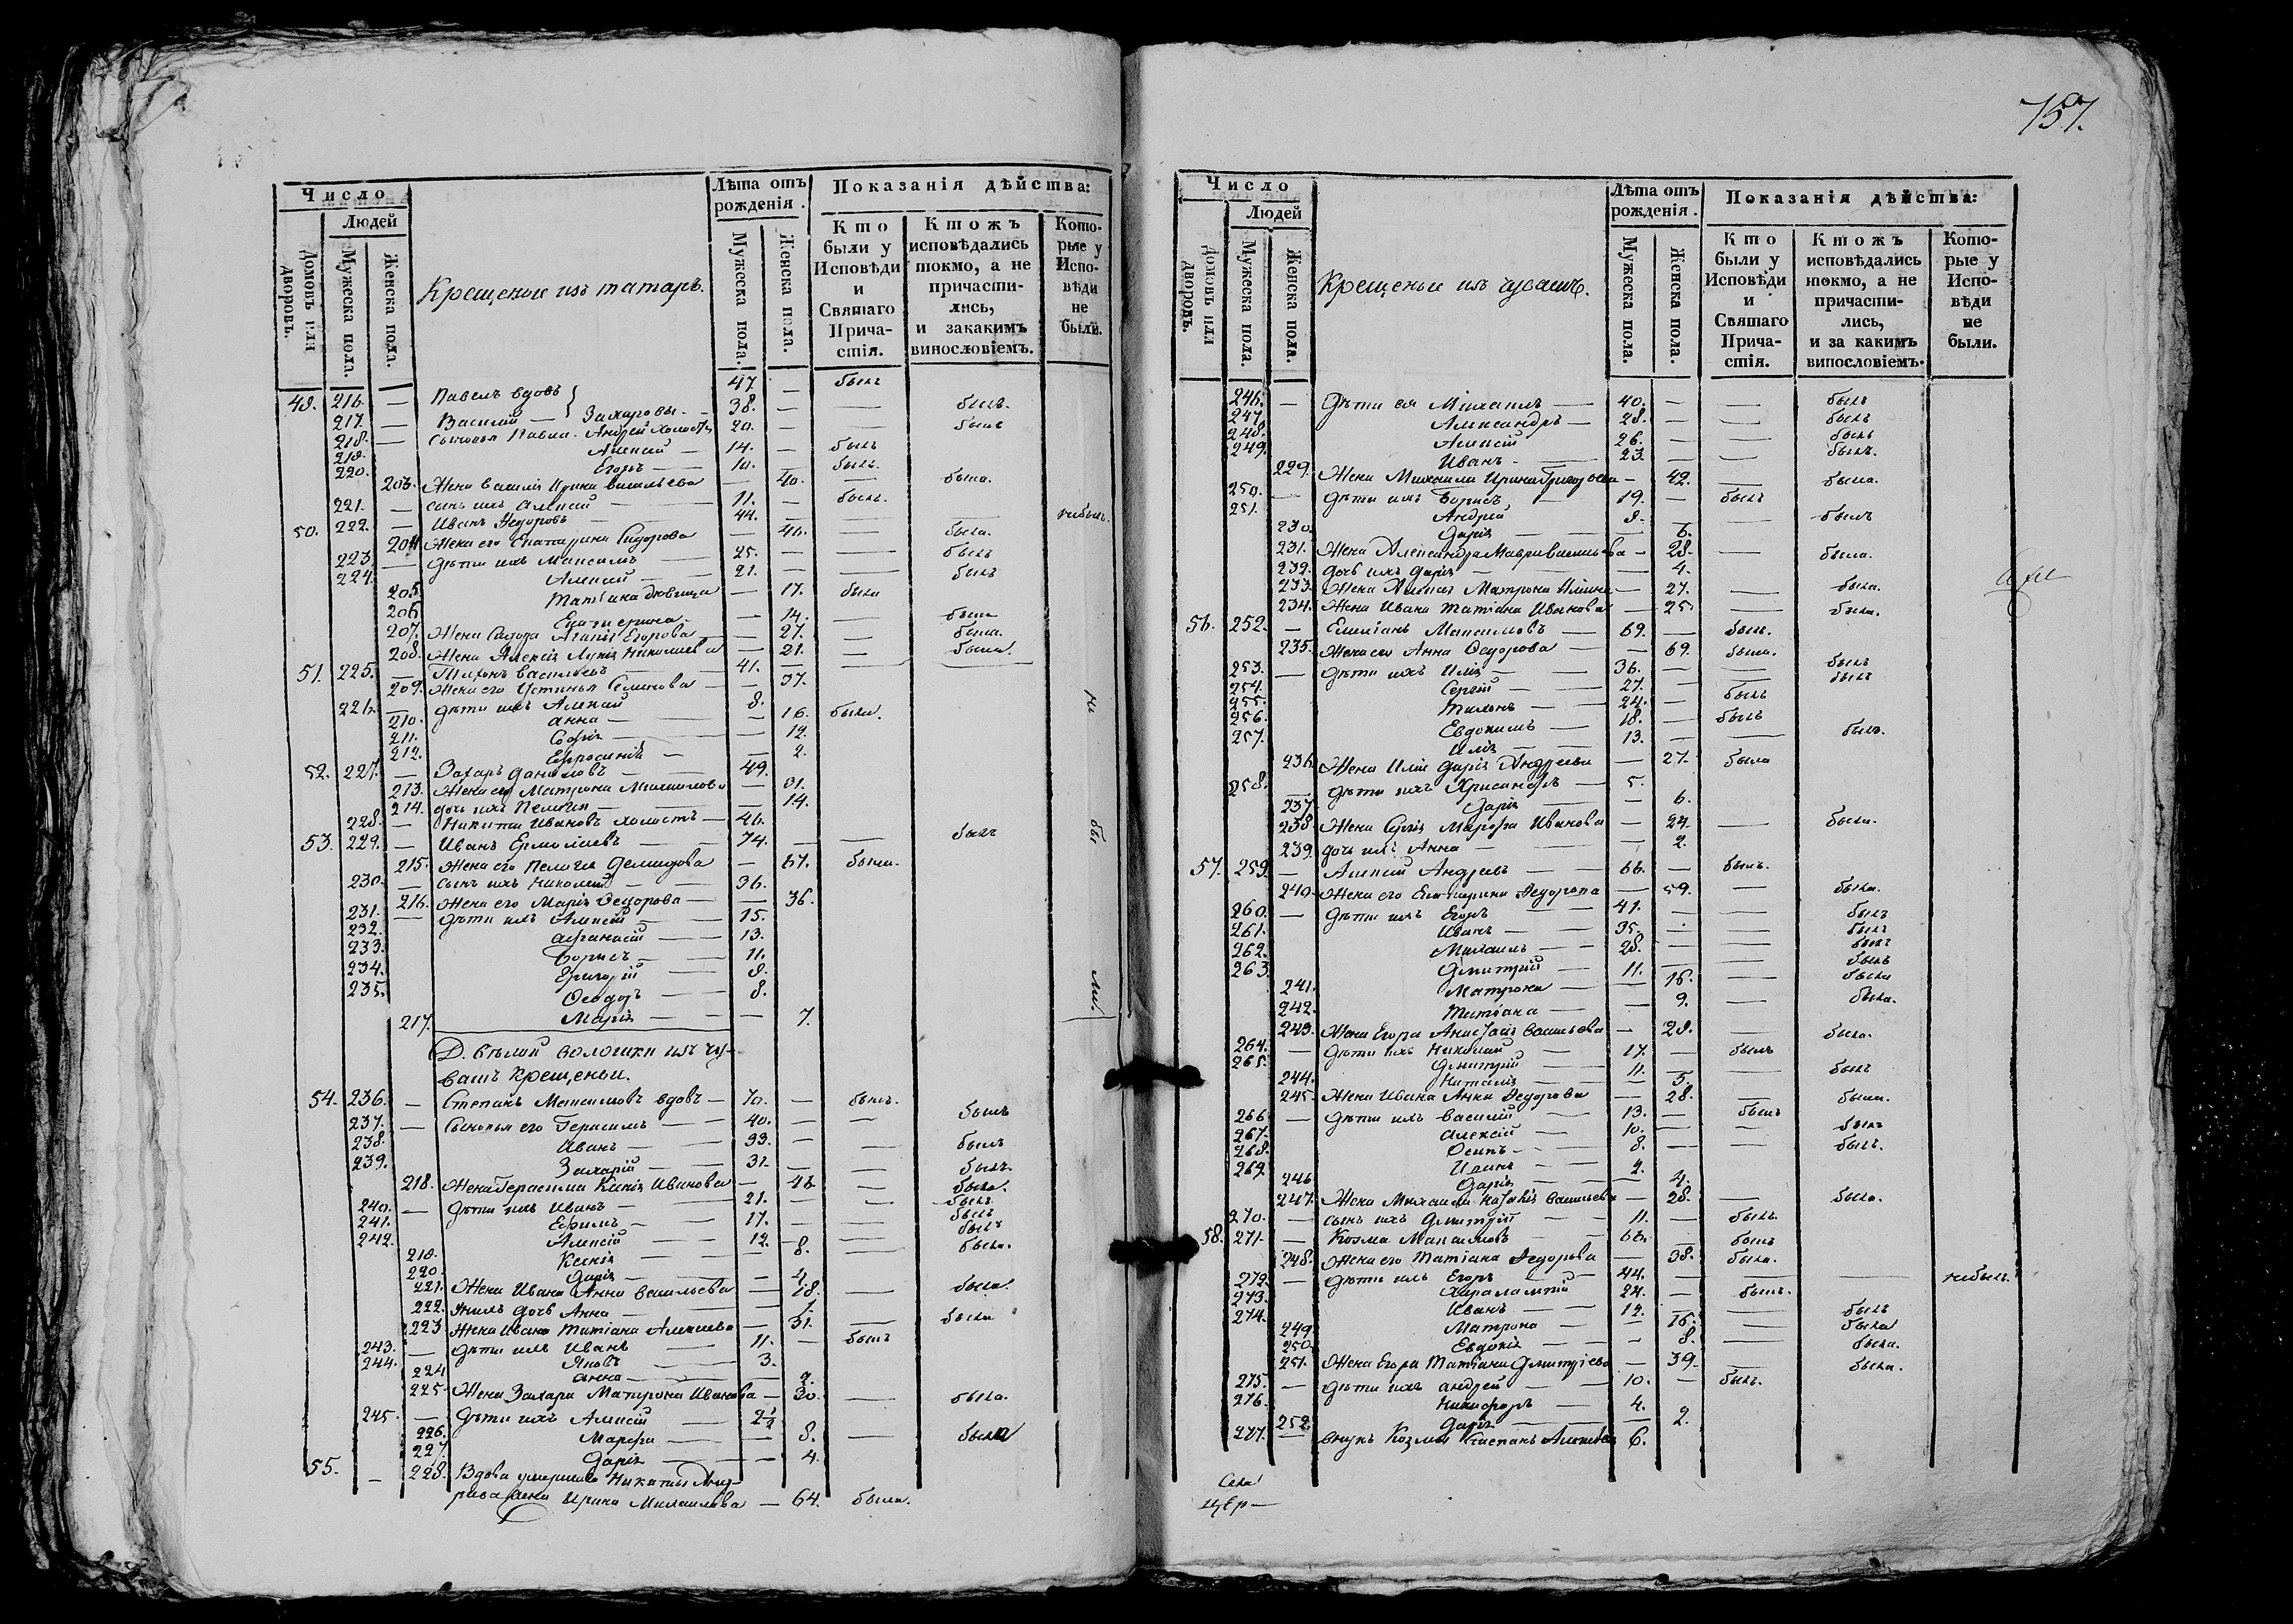 757.
Число
Людей
Домовъ или дворовъ.
Мужеска пола.
Женска пола.
Крещеные изъ татаръ.
Лѣта отъ рожденія.
Мужеска пола.
Женска пола.
Показанія дѣйства:
Кто были у Исповѣди и Святаго Прича-стія.
Ктожъ исповѣдались токмо, а не причасти-лись, и закакимъ винословіемъ.
Кото-рые у Испо-вѣди не были.
49. 216. — Павелъ вдовъ } 47. — былъ
217. — Василий — } Захаровы — 38. — — былъ.
218. — Сыновья Павла. Андрей холостъ 20. — — былъ
219. Алексий — 14. — былъ
220. Егоръ — 10. — былъ.
203. Жена Василія Ирина Васильева — 40. — была.
221. — сынъ ихъ Алексий — 11. — былъ.
50. 222. — Иванъ Ѳедоровъ — 44. — — небылъ.
204 Жена его Екатерина Сидорова — 46. — была.
223. — дѣти ихъ Максимъ — 25. — — былъ
224. Алексий — 21. — — былъ
205 Татіана дѣвица — 17. была
206 Екатерина — 14. — была
207. Жена Егорова — 27. — была.
208. Жена Алексія Николаева — 21. — была.
51. 225. — Тихонъ Васильевъ — 41. —
209. Жена его Устинья Семенова — 37.
226. — дѣти ихъ Алексий 8.
210. Анна — 16. была.
211. Софія — 12.
212. Ефросинія — 2.
52. 227. — Захаръ Даниловъ — 49.
213. Жена его Матрона Михаилова — 51.
214. дочь ихъ Пелагія — 14.
228. — Никита Ивановъ холостъ — 46.
53. 229. — Иванъ Ермолаевъ — 74. — — былъ
215. Жена его Пелагія Демидова — 67. была.
230. — сынъ ихъ Николай — 36.
216. Жена его Марія Ѳедорова — 36.
231. — дѣти ихъ Алексій — 15.
232. Афанасій — 13.
233. Борисъ — 11.
234. Григорій — 9.
235. Ѳеодоръ — 8.
217. Марія — 7.
не бы ли.
Д. Бѣлой воложки изъ чу-
вашъ крещеные.
54. 236. — Степанъ Максимовъ вдовъ — 70. — былъ.
237. — Сыновья его Герасимъ — 40. — — былъ
238. Иванъ — 33. — — былъ
239. Захарій — 31. — — былъ.
218. Жена Герасима Ксенія Иванова — 43. — была.
240. — дѣти ихъ Иванъ — 21. — — былъ
241. Ефимъ — 17. — — былъ
242. Алексій — 12. — — былъ
219. Ксенія 8. — была.
220. Дарія — 4.
221. Жена Ивана Анна Васильева — 28. — была.
222. у нихъ дочь Анна — 1.
223 Жена Ивана Татіана Алексеева — 31. — была
243. — дѣти ихъ Иванъ — 11. — былъ
244. Яковъ 3.
224 Анна — 2.
225. Жена Захара Матрона Иванова — 30. — была.
245. — Дѣти ихъ Алексій — 2½
226. Марфа — 8. — была
227. Дарія — 4.
55. — 228. Вдова умершаго Никиты
жена Ирина Михаилова — 64. была.
Число
Людей
Домовъ или дворовъ.
Мужеска пола.
Женска пола.
Крещеные изъ чувашъ.
Лѣта отъ рожденія.
Мужеска пола.
Женска пола.
Показанія дѣйства:
Кто были у Исповѣди и Святаго Прича-стія.
Ктожъ исповѣдались токмо, а не причасти-лись, и за какимъ винословіемъ.
Кото-рые у Испо-вѣди не были.
246. — Дѣти ея Михаилъ — 40. — — былъ
247. Александръ — 28. — — былъ
248. Алексій 26. — — былъ
249. Иванъ — 23. — — былъ.
229. Жена Михаила Ирина Григорьева — 42. — была.
250. — дѣти ихъ Борисъ — 19. — былъ
251. Андрей 9. — — былъ
230. Дарія — 6.
231. Жена Александра Мавра Васильева — 28. — была.
232. дочь ихъ Дарія — 4.
233. Жена Алексія Матрона Ильина — 27. — была.
234. Жена Ивана Татіана Иванова — 25. — была.
56. 252. — Емеліанъ Максимовъ — 69. — былъ.
235. Жена его Анна Ѳедорова — 69. была.
253. — дѣти ихъ Илія — 36. — — былъ
254. Сергій — 27. — — былъ
255. Тихонъ — 24. — былъ
256. Евдокимъ — 18. — былъ
257. Илія — 13. — — былъ.
236. Жена Иліи Дарія Андреева — 27. была
258. — дѣти ихъ Хрисанфъ — 5.
237. Дарія — 6.
238 Жена Сергія Марфа Иванова — 24. — была.
239. дочь ихъ Анна — 2.
57. 259. — Алексій Андреевъ — 66. — былъ.
240. Жена его Екатерина Ѳедорова — 59. — была.
260. — дѣти ихъ Егоръ — 41. — — былъ
261. Иванъ — 35. — — былъ
262. Михаилъ — 28. — — былъ
263. Дмитрій — 11. — — былъ
241. Матрона — 16. — была
242. Татіана — 9. — была.
243. Жена Егора Анастасія Васильева — 29. — была.
264. — дѣти ихъ Николай — 17. — былъ
265. Дмитрій — 11. — — былъ
244. Наталія — 5.
245. Жена Ивана Анна Ѳедорова — 28. — была.
266 — дѣти ихъ Василій — 13. — былъ
267. Алексій — 10. — — былъ
268. Осипъ — 8. — — былъ.
269. 2.
246 Дарія — 4.
247. Жена Михаила Васильева — 28. — была.
270. — сынъ ихъ Дмитрій — 11. — былъ.
58. 271. — Козма Максимовъ — 63. — былъ
248. Жена его Татіана Ѳедорова — 38. была.
272. — дѣти ихъ Егоръ — 44. — — — небылъ.
273. Харалампій 24. — былъ.
274. Иванъ — 12. — — былъ
249. Матрона — 16. — была
250. Евдокія — 8. — была.
251. Жена Егора Татіана Дмитріева — 39. — была.
275. — дѣти ихъ Андрей — 10. — былъ.
276. Никифоръ — 4.
252. Дарія — 2.
277. — внукъ Козмы Степанъ Алексѣевъ 6.
Села
Цер—